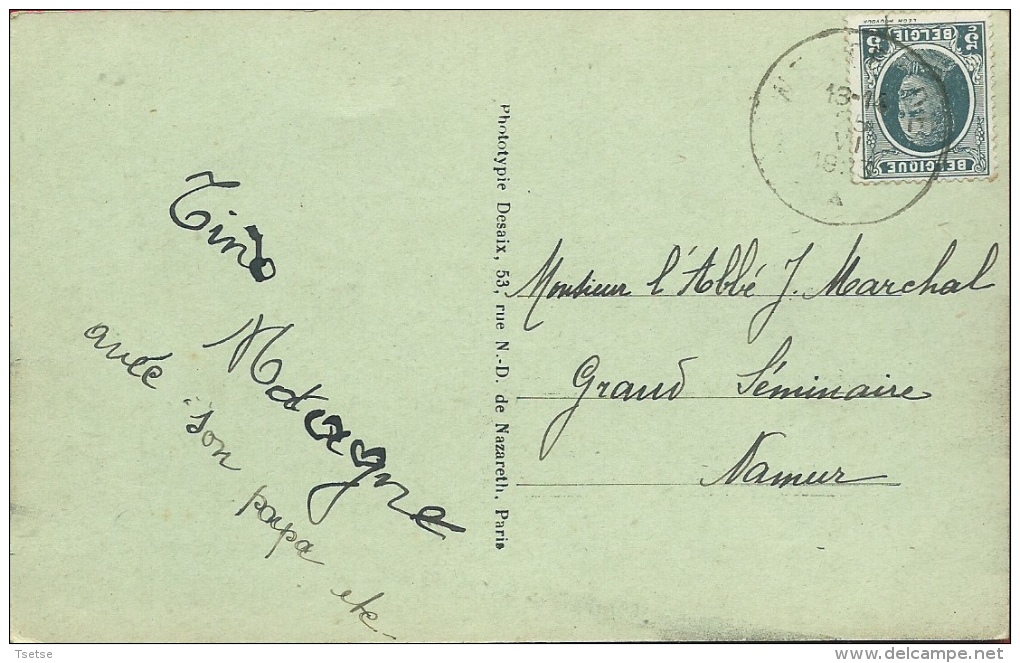 Tino
Matagne
avec son papa etc
Phototypie Desaix, 53, rue N.-D. de Nazareth, Paris
BELGIE
5 5
BELGIQUE
13-14
VII
Monsieur l'Abbé J. Marchal
Grand Séminaire
Namur
Tsetse
delcampe.net